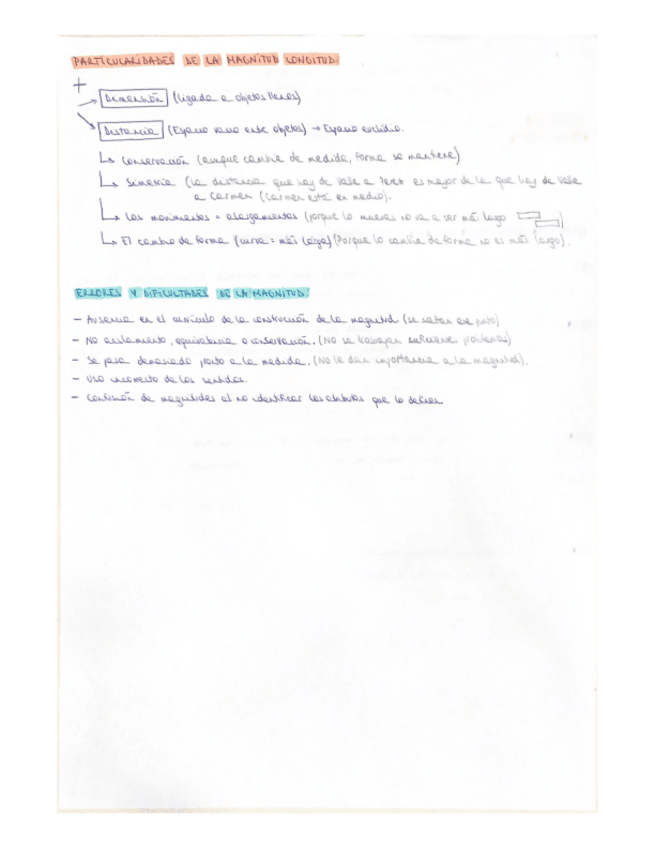 PARTICULARIDADES DE LA MAGNITUD LONGITUD.
+
Dimensión (Ligada a objetos llenos)
Distancia (Espacio vacío entre objetos) → Espacio euclídio.
↳ Conservación (aunque cambie de medida, forma se mantiene)
↳ Simetría (La distancia que hay de Valle a es mayor de la que hay de Valle
a Carmen (Carmen está en medio).
↳ Los movimientos = alargamientos (porque lo mueves no va a ser más largo)
↳ El cambio de forma (curva = más largo) (Porque lo cambie de forma no es más largo).
ERRORES Y DIFICULTADES DE LA MAGNITUD:
- Ausencia en el currículo de la construcción de la magnitud (se saltan ese punto)
- No aislamiento, equivalencia o conservación. (No se trabajan suficientes)
- Se pasa demasiado pronto a la medida. (No le dan importancia a la magnitud).
- Uso incorrecto de los sentidos.
- Confusión de magnitudes al no identificar los atributos que lo definen